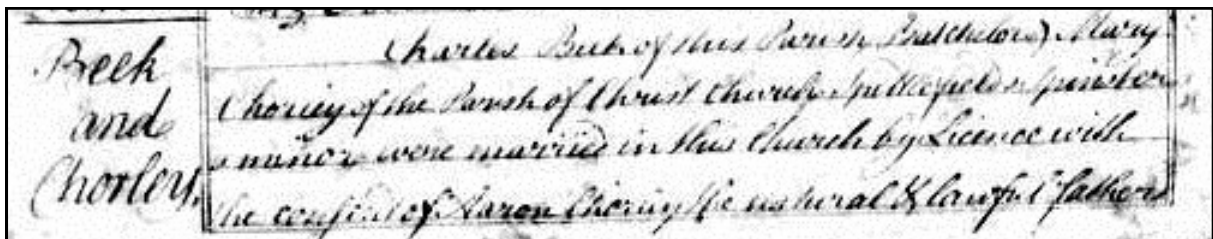 Beek
and
Chorley.
Charles Beek of this Parish Batchelor & Mary
Chorley of the Parish of Christ Church Spittlefields Spinster
a minor were married in this Church by Licence with
the consent of Aaron Chorley the natural & lawful father